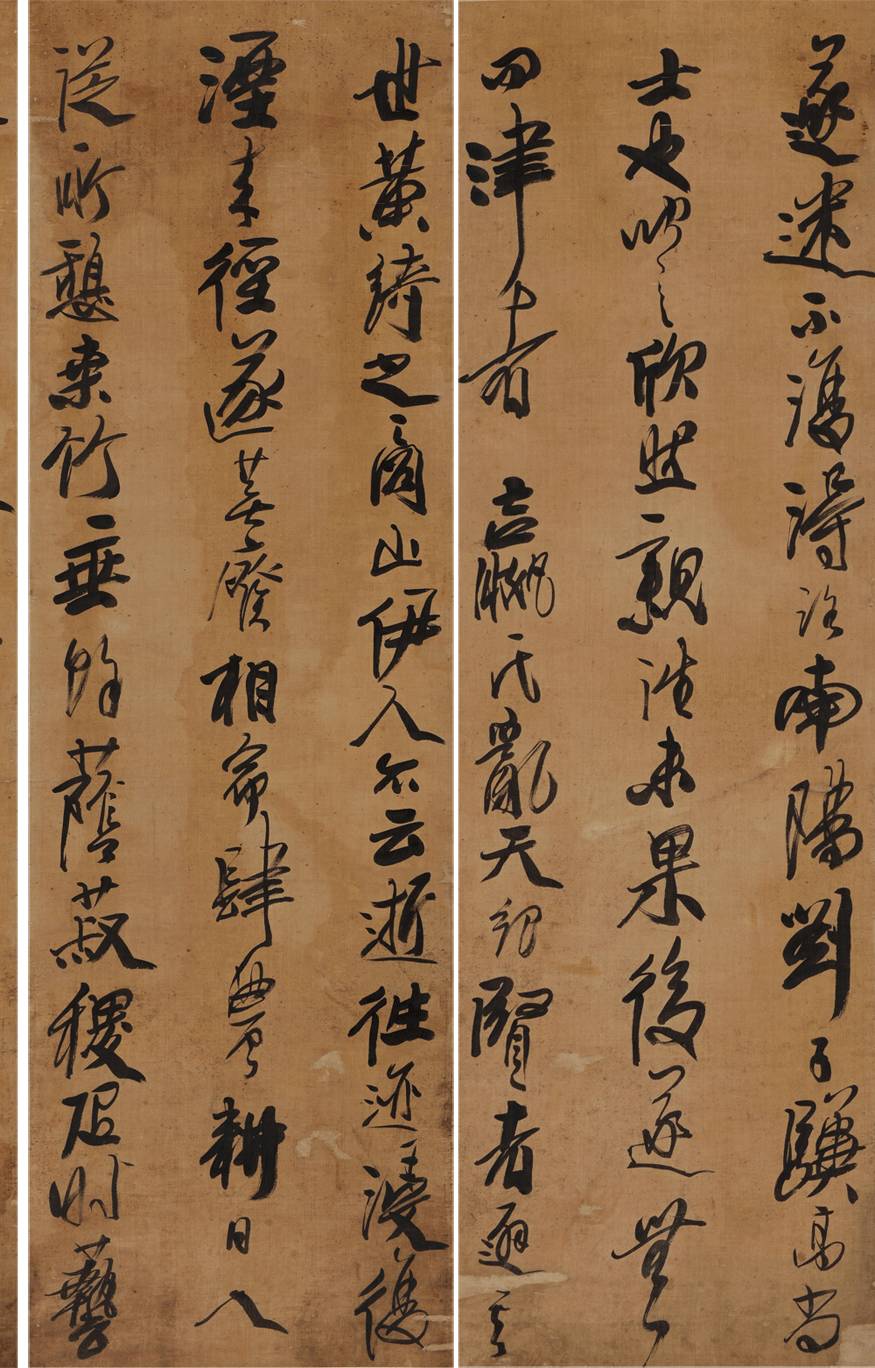 遂迷不復得路南陽劉子驥高尚
士也聞之欣然親往未果後遂無
問津者 嬴氏亂天紀賢者避其
世黃綺之商山伊人亦云逝往迹浸復
湮来徑遂蕪廢相命肆農耕日入
從所憩桑竹垂餘蔭菽稷時藝